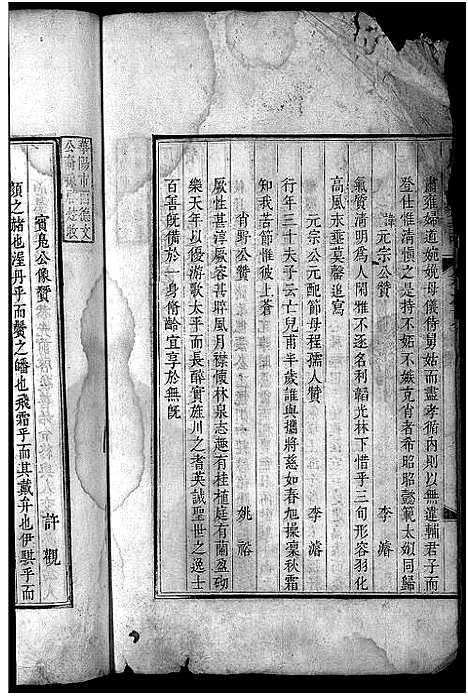 肅雍婦道婉娩母儀侍舅姑而盡孝循內則以無違輔君子而
登仕惟清慎之是持不妬不嫉克肖者希昭昭懿範太姒同歸
諱元宗公贊　李濬
氣質清明爲人閒雅不逐名利韜光林下惜乎三旬形容羽化
高風永垂莫罄追寫
元宗公元配節母程孺人贊　李濬
行年三十夫子云亡兒甫半歲誰與攜將慈如春旭操凜秋霜
知我苦節惟彼上蒼
肖野公贊　姚裕
厥性甚淳厥容甚粹風月襟懷林泉志趣有桂植庭有蘭盈砌
樂天年以優游歌太平而長醉實旌川之耆英誠聖世之逸士
百善旣備於一身脩齡宜享於無旣
賓嵬公像贊　許觀
顏之赭也渥丹乎而鬢之皤也飛霜乎而其戴弁也伊騏乎而